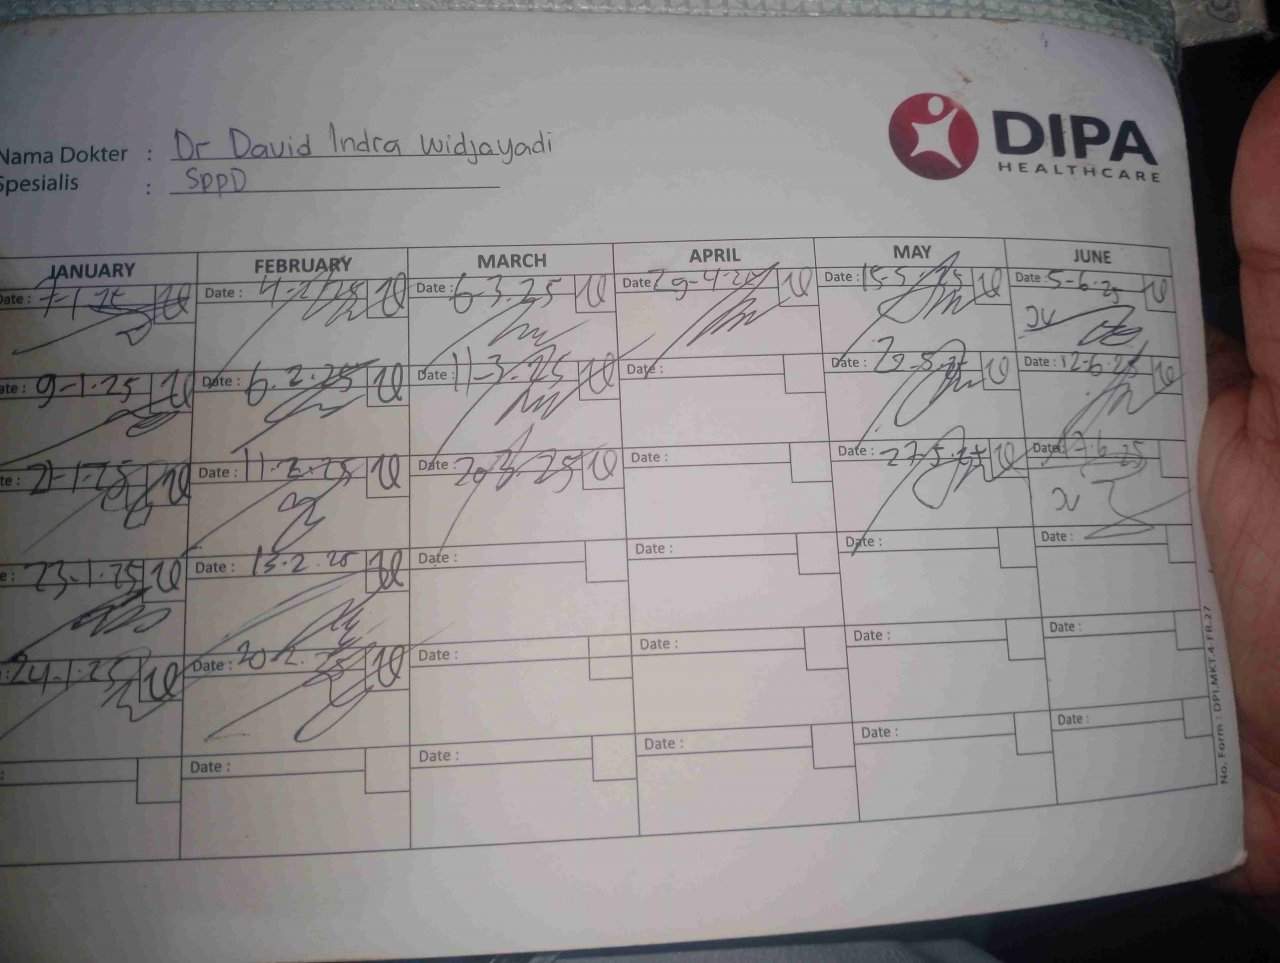 Nama Dokter : Dr David Indra Widjayadi
Spesialis : SPPD
DIPA
HEALTHCARE
JANUARY FEBRUARY MARCH APRIL MAY JUNE
Date : 7-1-25 Date : 4-2-25 Date : 6-3-25 Date 29-4-25 Date : 15-5-25 Date : 5-6-25
ate : 9-1-25 Date : 6-2-25 Date : 11-3-25 Date : Date : Date : 12-6-25
te : 21-1-25 Date : 11-2-25 Date : Date : Date : 27-5-25 Date
e : 23-1-25 Date : 13-2-25 Date : Date : Date : Date :
: 24-1-25 Date : 20-2-25 Date : Date : Date : Date :
: Date : Date : Date : Date : Date :
No. Form : DPI.MKT.4-FR.27